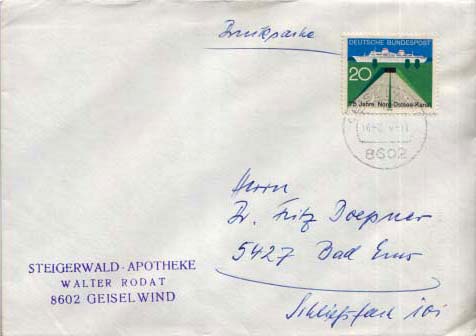 Drucksache
DEUTSCHE BUNDESPOST
20
75 Jahre Nord-Ostsee-Kanal
8602
Herrn
Dr. Fritz Doepner
5427 Bad Ems
Schließfach 101
STEIGERWALD-APOTHEKE
WALTER RODAT
8602 GEISELWIND